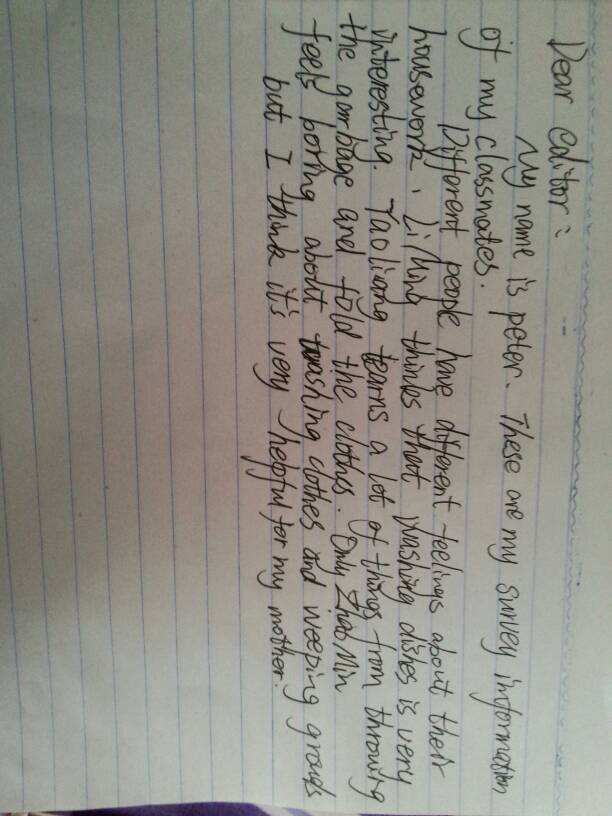 Dear editor:
My name is peter. These are my survey information
of my classmates.
Different people have different feelings about their
housework. Li Ming thinks that washing dishes is very
interesting. Tao liang learns a lot of things from throwing
the garbage and fold the clothes. Only Zhao Min
feels boring about washing clothes and weeping grouds
but I think it's very helpful for my mother.